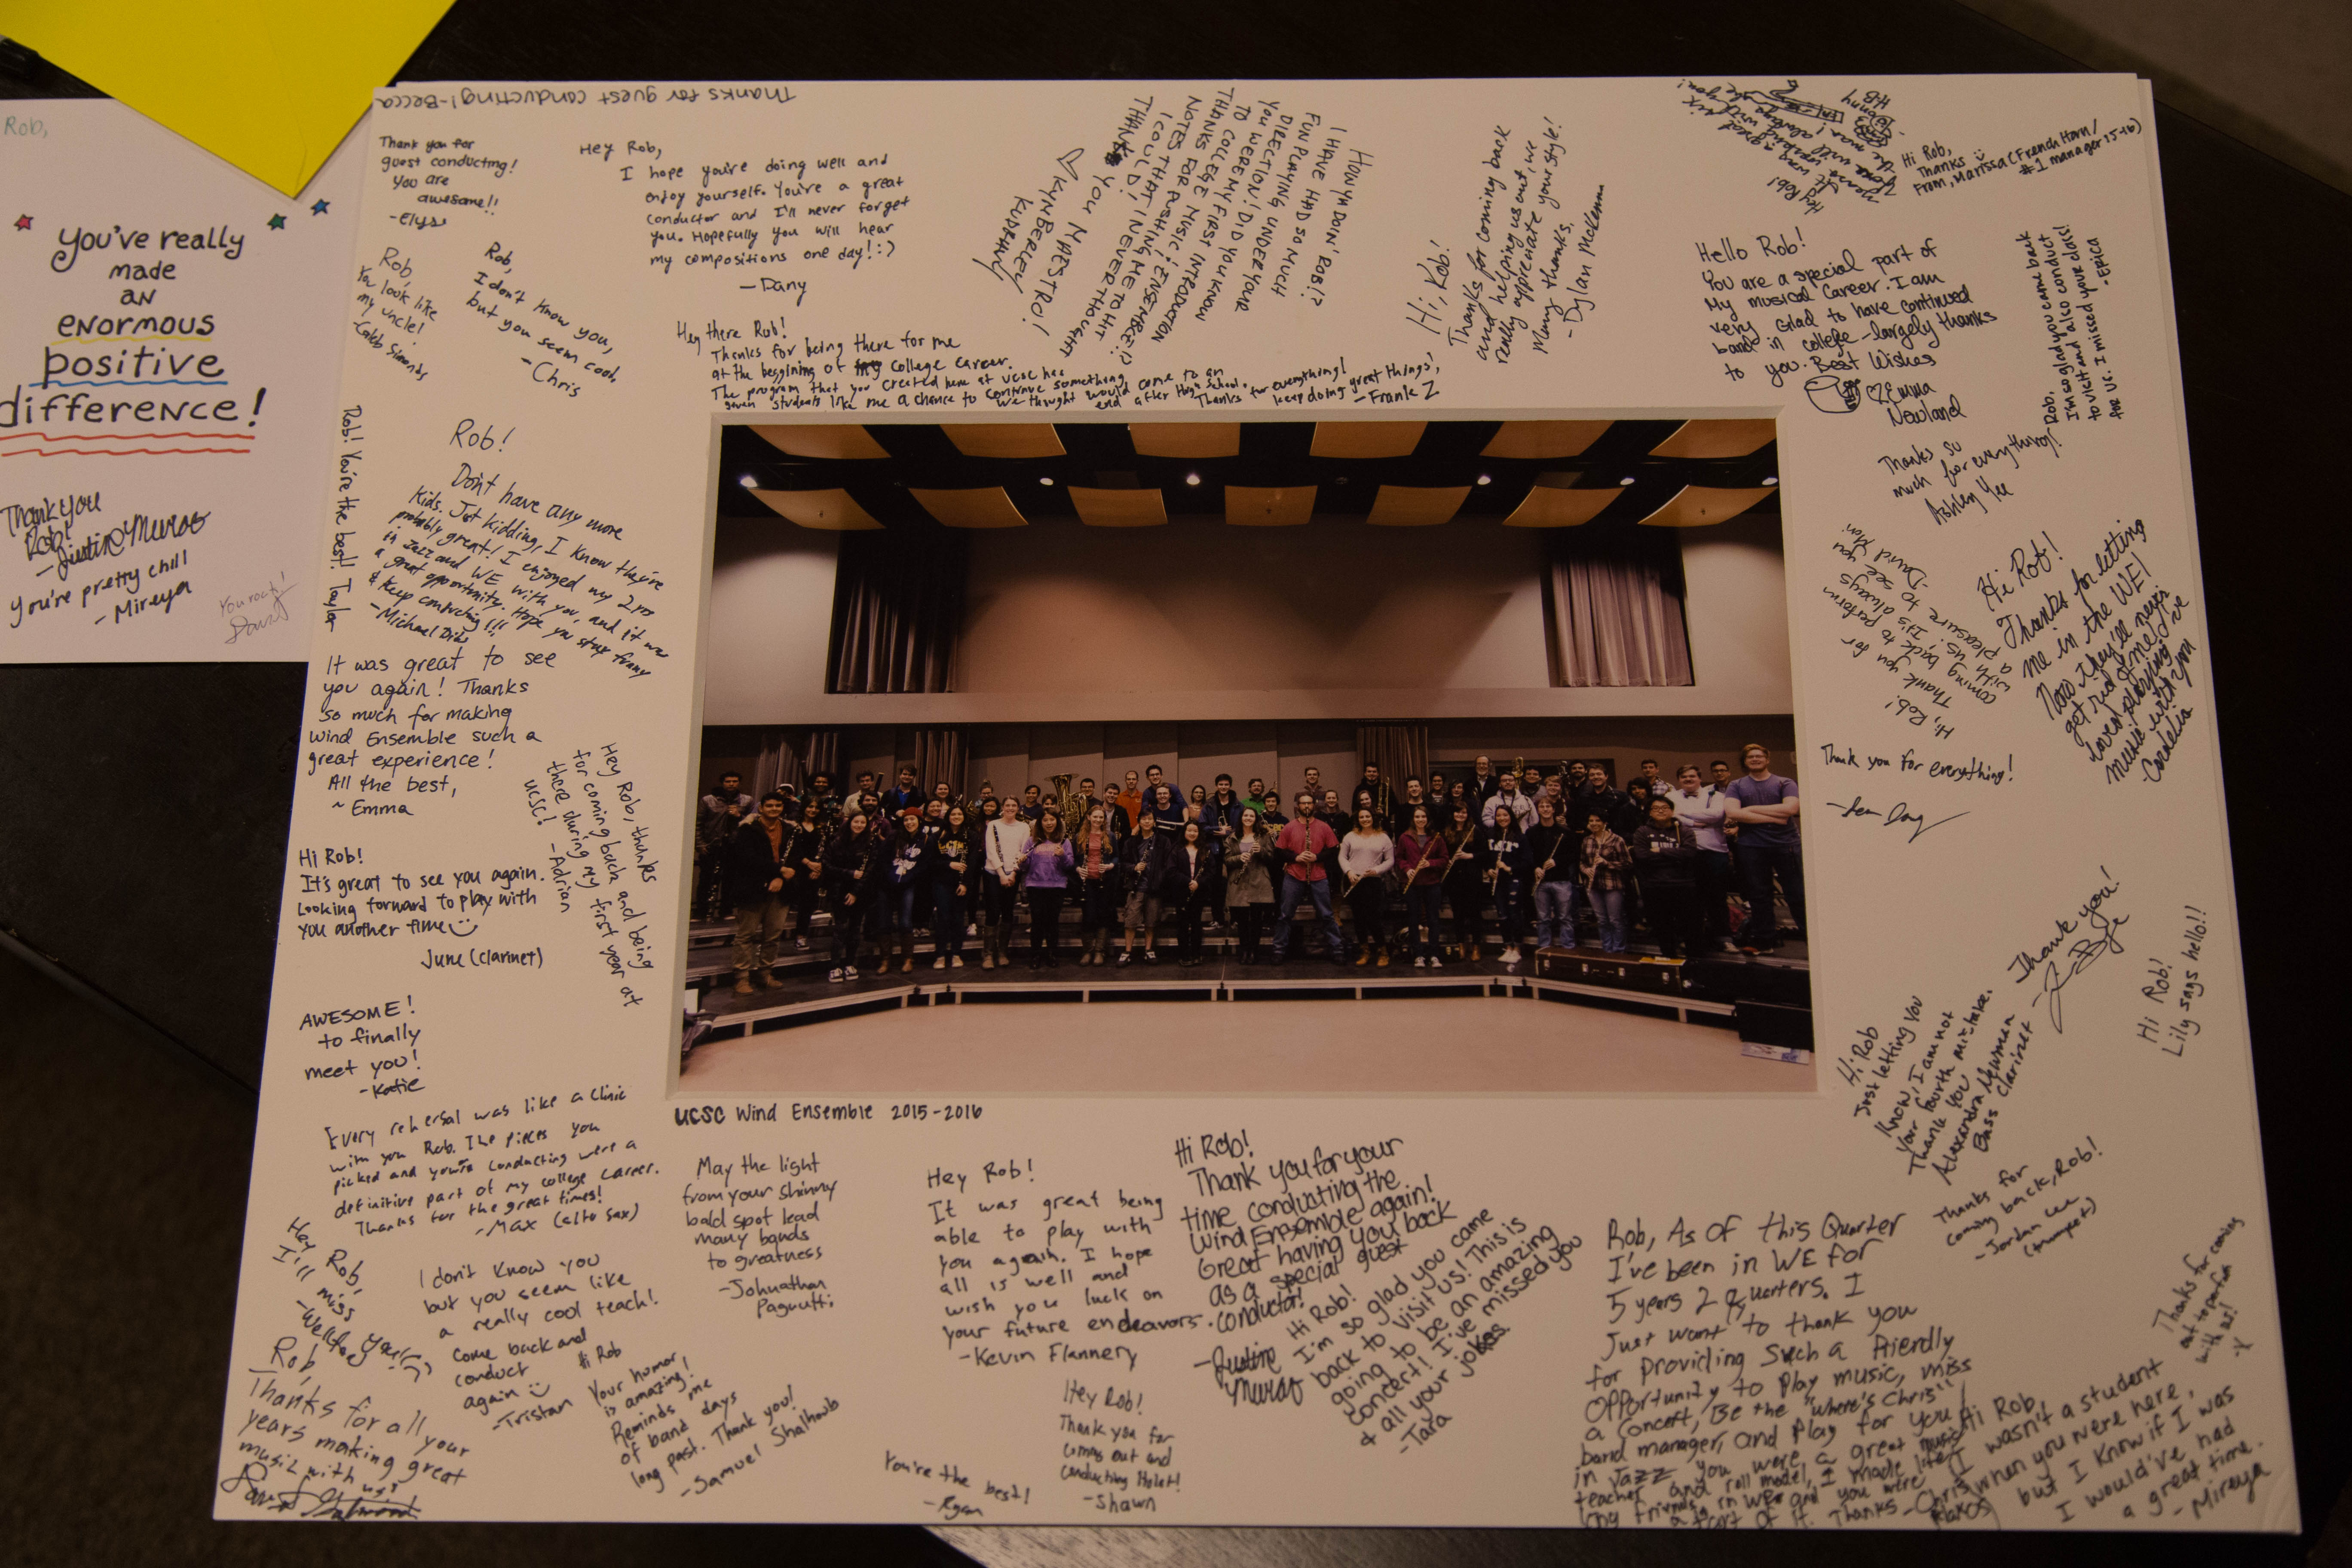 Rob,
You've really
made
an
enormous
positive
difference!
Thank you
Rob!
- Justine Muros
you're pretty chill
- Mireya
You rock!
Thanks for guest conducting! -Becca
Thank you for
guest conducting!
You are
awesome!!
-Elyse
Hey Rob,
I hope you're doing well and
enjoy yourself. You're a great
conductor and I'll never forget
you. Hopefully you will hear
my compositions one day! :)
- Dany
Rob,
You look like
my uncle!
-Caleb Simonds
Rob,
I don't know you,
but you seem cool,
- Chris
Hey there Rob!
Thanks for being there for me
at the beggining of my college career.
The program that you created here at ucsc has
given students like me a chance to continue something
we thought would come to an
end after High School.
Thanks for everything!
keep doing great things,
- Frank Z
HOW YA DOIN' ROB!?
I HAVE HAD SO MUCH
FUN PLAYING UNDER YOUR
DIRECTION! DID YOU KNOW
YOU WERE MY FIRST INTRODUCTION
TO COLLEGE MUSIC / ENSEMBLE!?
THANKS FOR PUSHING ME TO HIT
NOTES THAT I NEVER THOUGHT
I COULD!
THANK YOU MAESTRO!
♡ KYNBERLEY
Hi, Rob!
Thanks for coming back
and helping us out, we
really appreciate your style!
Many thanks,
- Dylan McKenna
Hey Rob!
Hi Rob,
Thanks
From, Marissa (French Horn /
#1 manager 15-16)
Hello Rob!
You are a special part of
my musical career. I am
very glad to have continued
band in college - largely thanks
to you. Best Wishes
♡ Emma
Nowland
Rob,
I'm so glad you came back
to visit and also conduct
for us. I missed your class!
- ERICA
Thanks so
much for everything!
Ashley Yee
Rob! You're the best! Taylor
Rob!
Don't have any more
kids. Just kidding, I know they're
probably great! I enjoyed my 2 yrs
in Jazz and WE with you, and it was
a great opportunity. Hope you stay funny
& keep conducting!!!
- Michael Dias
Hi, Rob!
Thank you for
coming back to perform
with us! It's always
a pleasure to see you
-David Mori
Hi Rob!
Thanks for letting
me in the WE!
Now they'll never
get rid of me. I've
loved playing
music with you
-Cordelia
It was great to see
you again! Thanks
so much for making
Wind Ensemble such a
great experience!
All the best,
~ Emma
Hey Rob, thanks
for coming back and being
there during my first year at
UCSC!
- Adrian
Thank you for everything!
Hi Rob!
It's great to see you again.
Looking forward to play with
you another time
June (clarinet)
Thank you!
Hi Rob!
Lily says hello!!
Hi Rob
Just letting you
know, I am not
your fourth mistake.
Thank you
Alexandra Newman
Bass clarinet
AWESOME!
to finally
meet you!
- Katie
Every rehersal was like a clinic
with you Rob. The pieces you
picked and you're conducting were a
definitive part of my college career.
Thanks for the great times!
- Max (alto sax)
UCSC Wind Ensemble 2015-2016
May the light
from your shinny
bald spot lead
many bands
to greatness
-Johnathan
Hey Rob!
It was great being
able to play with
you again. I hope
all is well and
wish you luck on
your future endeavors.
-Kevin Flannery
Hi Rob!
Thank you for your
time conducting the
Wind Ensemble again!
Great having you back
as a special guest
conductor!
-Justine
Muros
Hi Rob!
I'm so glad you came
back to visit us! This is
going to be an amazing
concert! I've missed you
& all your jokes
-Tara
Thanks for
coming back, Rob!
-Jordan
(trumpet)
Hey Rob,
I'll miss
you!
I don't know you
but you seem like
a really cool teach!
Come back and
conduct
again
-Tristan
Rob,
Thanks for all your
years making great
music with us!
Hi Rob
Your humor
is amazing!
Reminds me
of band days
long past. Thank you!
-Samuel Shalhoub
You're the best!
-Ryan
Hey Rob!
Thank you for
coming out and
conducting Holst!
-Shawn
Rob, As of this Quarter
I've been in WE for
5 years 2 quarters. I
Just want to thank you
for providing such a friendly
opportunity to play music, miss
a concert, Be the "where's Chris"
band manager, and play for you
in Jazz. you were a great music
teacher and roll model, I made life long
friends in WE and you were
a part of it. Thanks -Chris
Thanks for coming
out to perform
with us!
Hi Rob,
I wasn't a student
when you were here,
but I know if I was
I would've had
a great time.
- Mireya